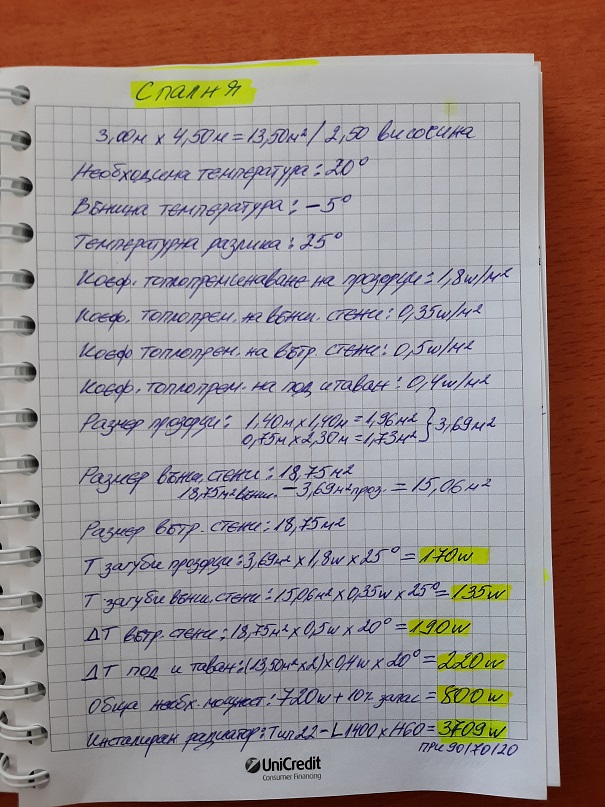 Спалня
3,00м x 4,50м = 13,50м² / 2,50 височина
Необходима температура: 20°
Външна температура: -5°
Температурна разлика: 25°
Коеф. топлопреминаване на прозорци: 1,8w/м²
Коеф. топлопрем. на външ. стени: 0,35w/м²
Коеф топлопрем. на вътр. стени: 0,5w/м²
Коеф. топлопрем. на под и таван: 0,4w/м²
Размер прозорци: 1.40м x 1,40м = 1,96м² } 3,69м²
0,75м x 2,30м = 1,73м²
Размер външ. стени: 18,75м²
18,75м² външ. - 3,69м² проз. = 15,06м²
Размер вътр. стени: 18,75м²
Т загуби прозорци: 3,69м² x 1,8w x 25° = 170w
Т загуби външ. стени: 15,06м² x 0,35w x 25° = 135w
ΔТ вътр. стени: 18,75м² x 0,5w x 20° = 190w
ΔТ под и таван: (13,50м² x 2) x 0,4w x 20° = 220w
Обща необх. мощност: 720w + 10% запас = 800w
Инсталиран радиатор: Тип 22 - L1400 x H60 = 3709w
при 90/70/20
UniCredit
Consumer Financing